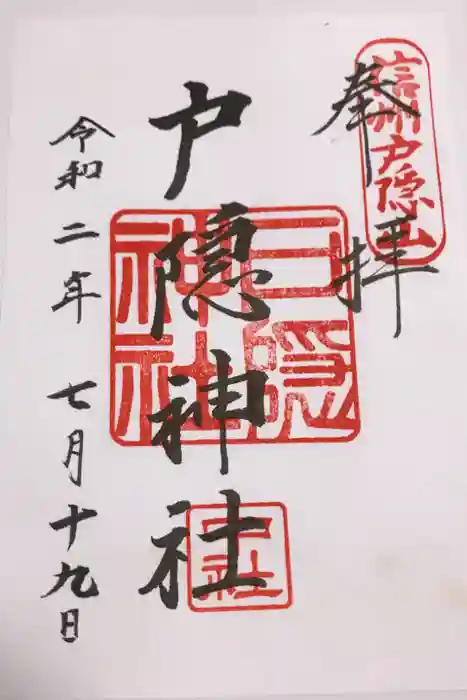 奉拝
信州戸隠山
戸隠神社
戸隠神社
中社
令和二年 七月十九日